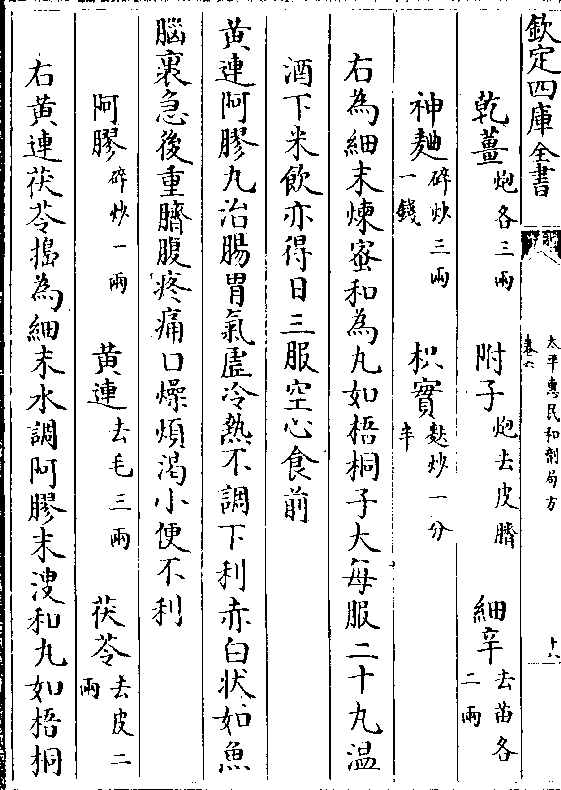 欽定四庫全書
太平惠民和劑局方
卷六
十八
乾薑炮各三兩 附子炮去皮臍 細辛去苗各二兩
神麯碎炒三兩一錢 枳實麩炒一分半
右為細末煉蜜和為丸如梧桐子大每服二十丸温
酒下米飲亦得日三服空心食前
黄連阿膠丸治腸胃氣虚冷熱不調下利赤白状如魚
腦裏急後重臍腹疼痛口燥煩渴小便不利
阿膠碎炒一兩 黄連去毛三兩 茯苓去皮二兩
右黄連茯苓搗為細末水調阿膠末溲和丸如梧桐